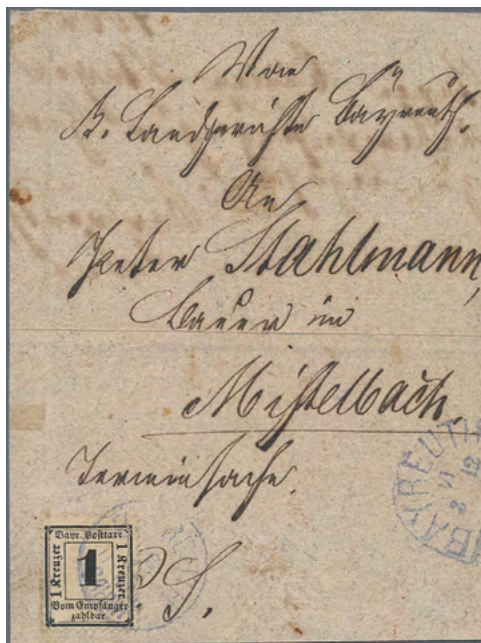 Von
K. Landgerichte Bayreuth.
An
Peter Stahlmann,
Bauer in
Mistelbach
Terminsache.
BAYREUTH
VI
12
Bayr. Posttaxe
1 Kreuzer
1
1 Kreuzer
Vom Empfänger
zahlbar
S.